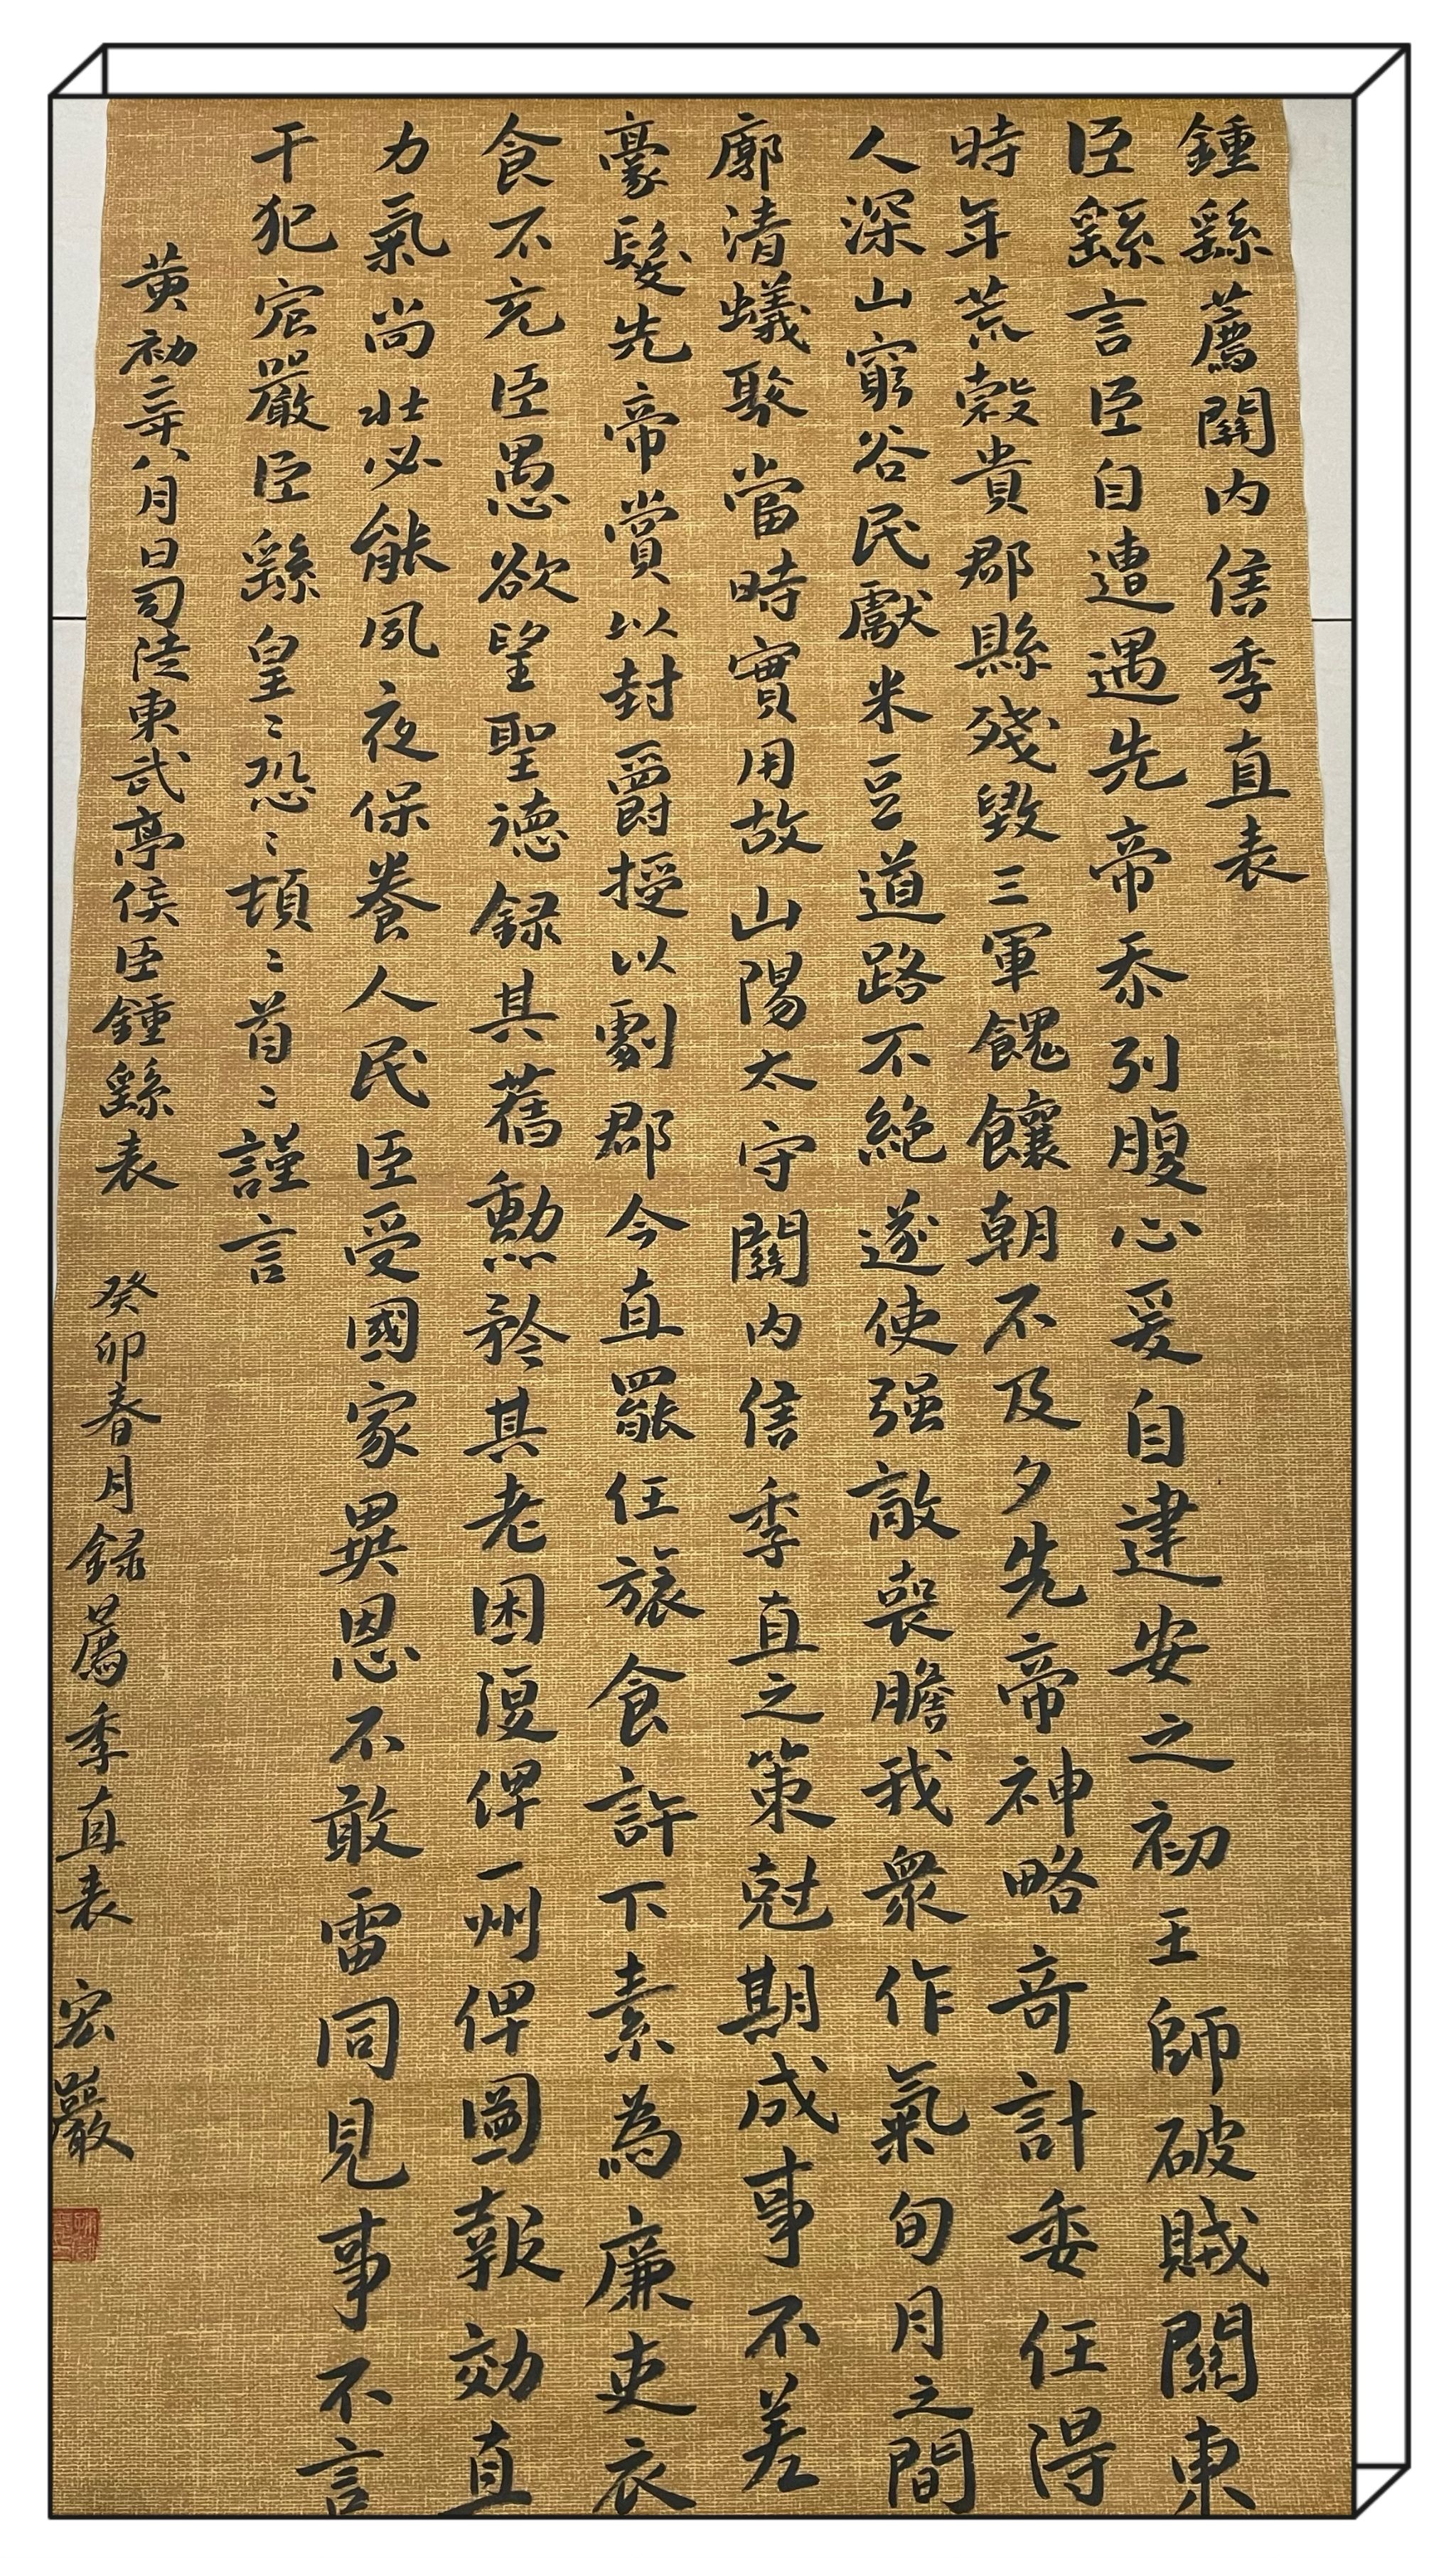 鍾繇薦關内信季直表
臣繇言臣自遭遇先帝忝列腹心爰自建安之初王師破賊關東
時年荒穀貴郡縣殘毀三軍餽饟朝不及夕先帝神略奇計委任得
人深山窮谷民獻米豆道路不絶遂使强敵喪膽我衆作氣旬月之間
廓清蟻聚當時實用故山陽太守關内信季直之策尅期成事不差
豪髮先帝賞以封爵授以劇郡今直罷任旅食許下素為廉吏衣
食不充臣愚欲望聖德録其舊勲矜其老困復俾一州俾圖報効直
力氣尚壯必能夙夜保養人民臣受國家異恩不敢雷同見事不言
干犯宸嚴臣繇皇〻恐〻頓〻首〻謹言
黄初二年八月日司徒東武亭侯臣鍾繇表 癸卯春月録薦季直表 宏嚴